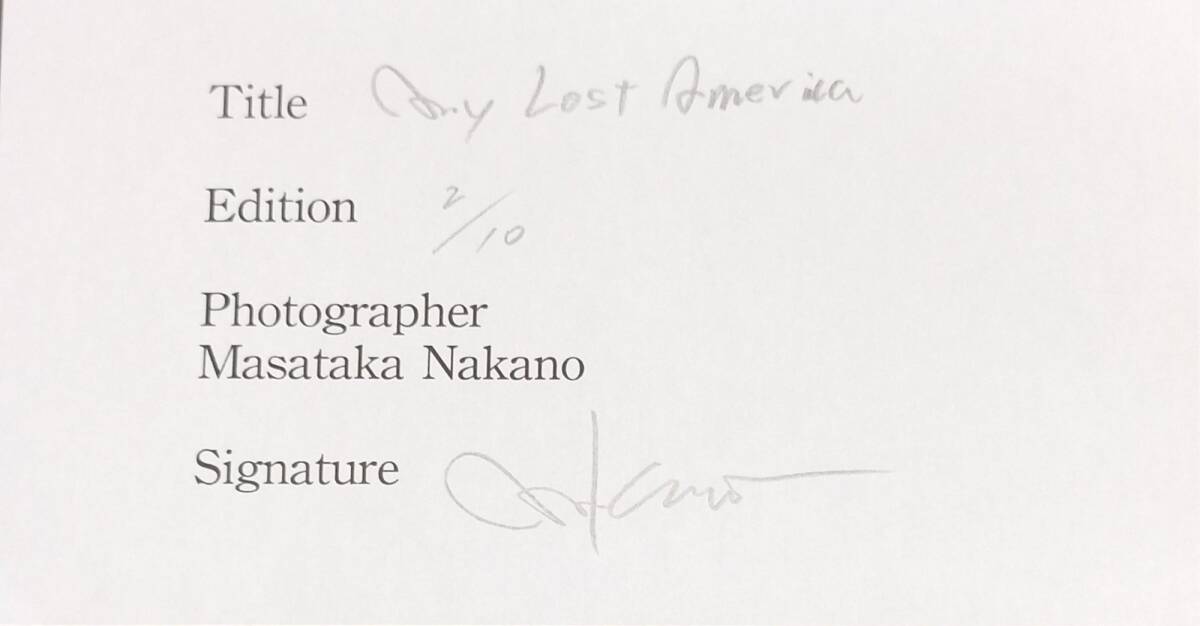 Title My Lost America
Edition 2/10
Photographer
Masataka Nakano
Signature